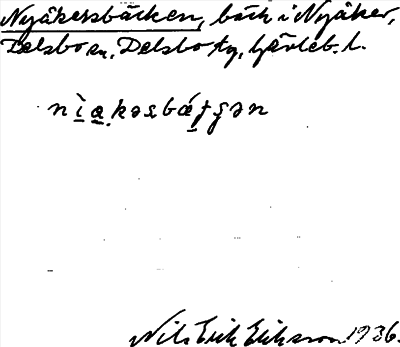 Nyåkersbäcken, bäck i Nyåker,
Delsbo sn, Delsbo tg, Gävleb. l.
nìa̱kəsbǽʈʂən
Nils Erik Eriksson 1936.